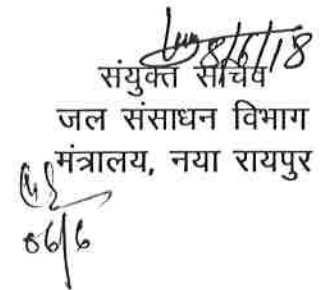 8/6/18
संयुक्त सचिव
जल संसाधन विभाग
मंत्रालय, नया रायपुर
06/6